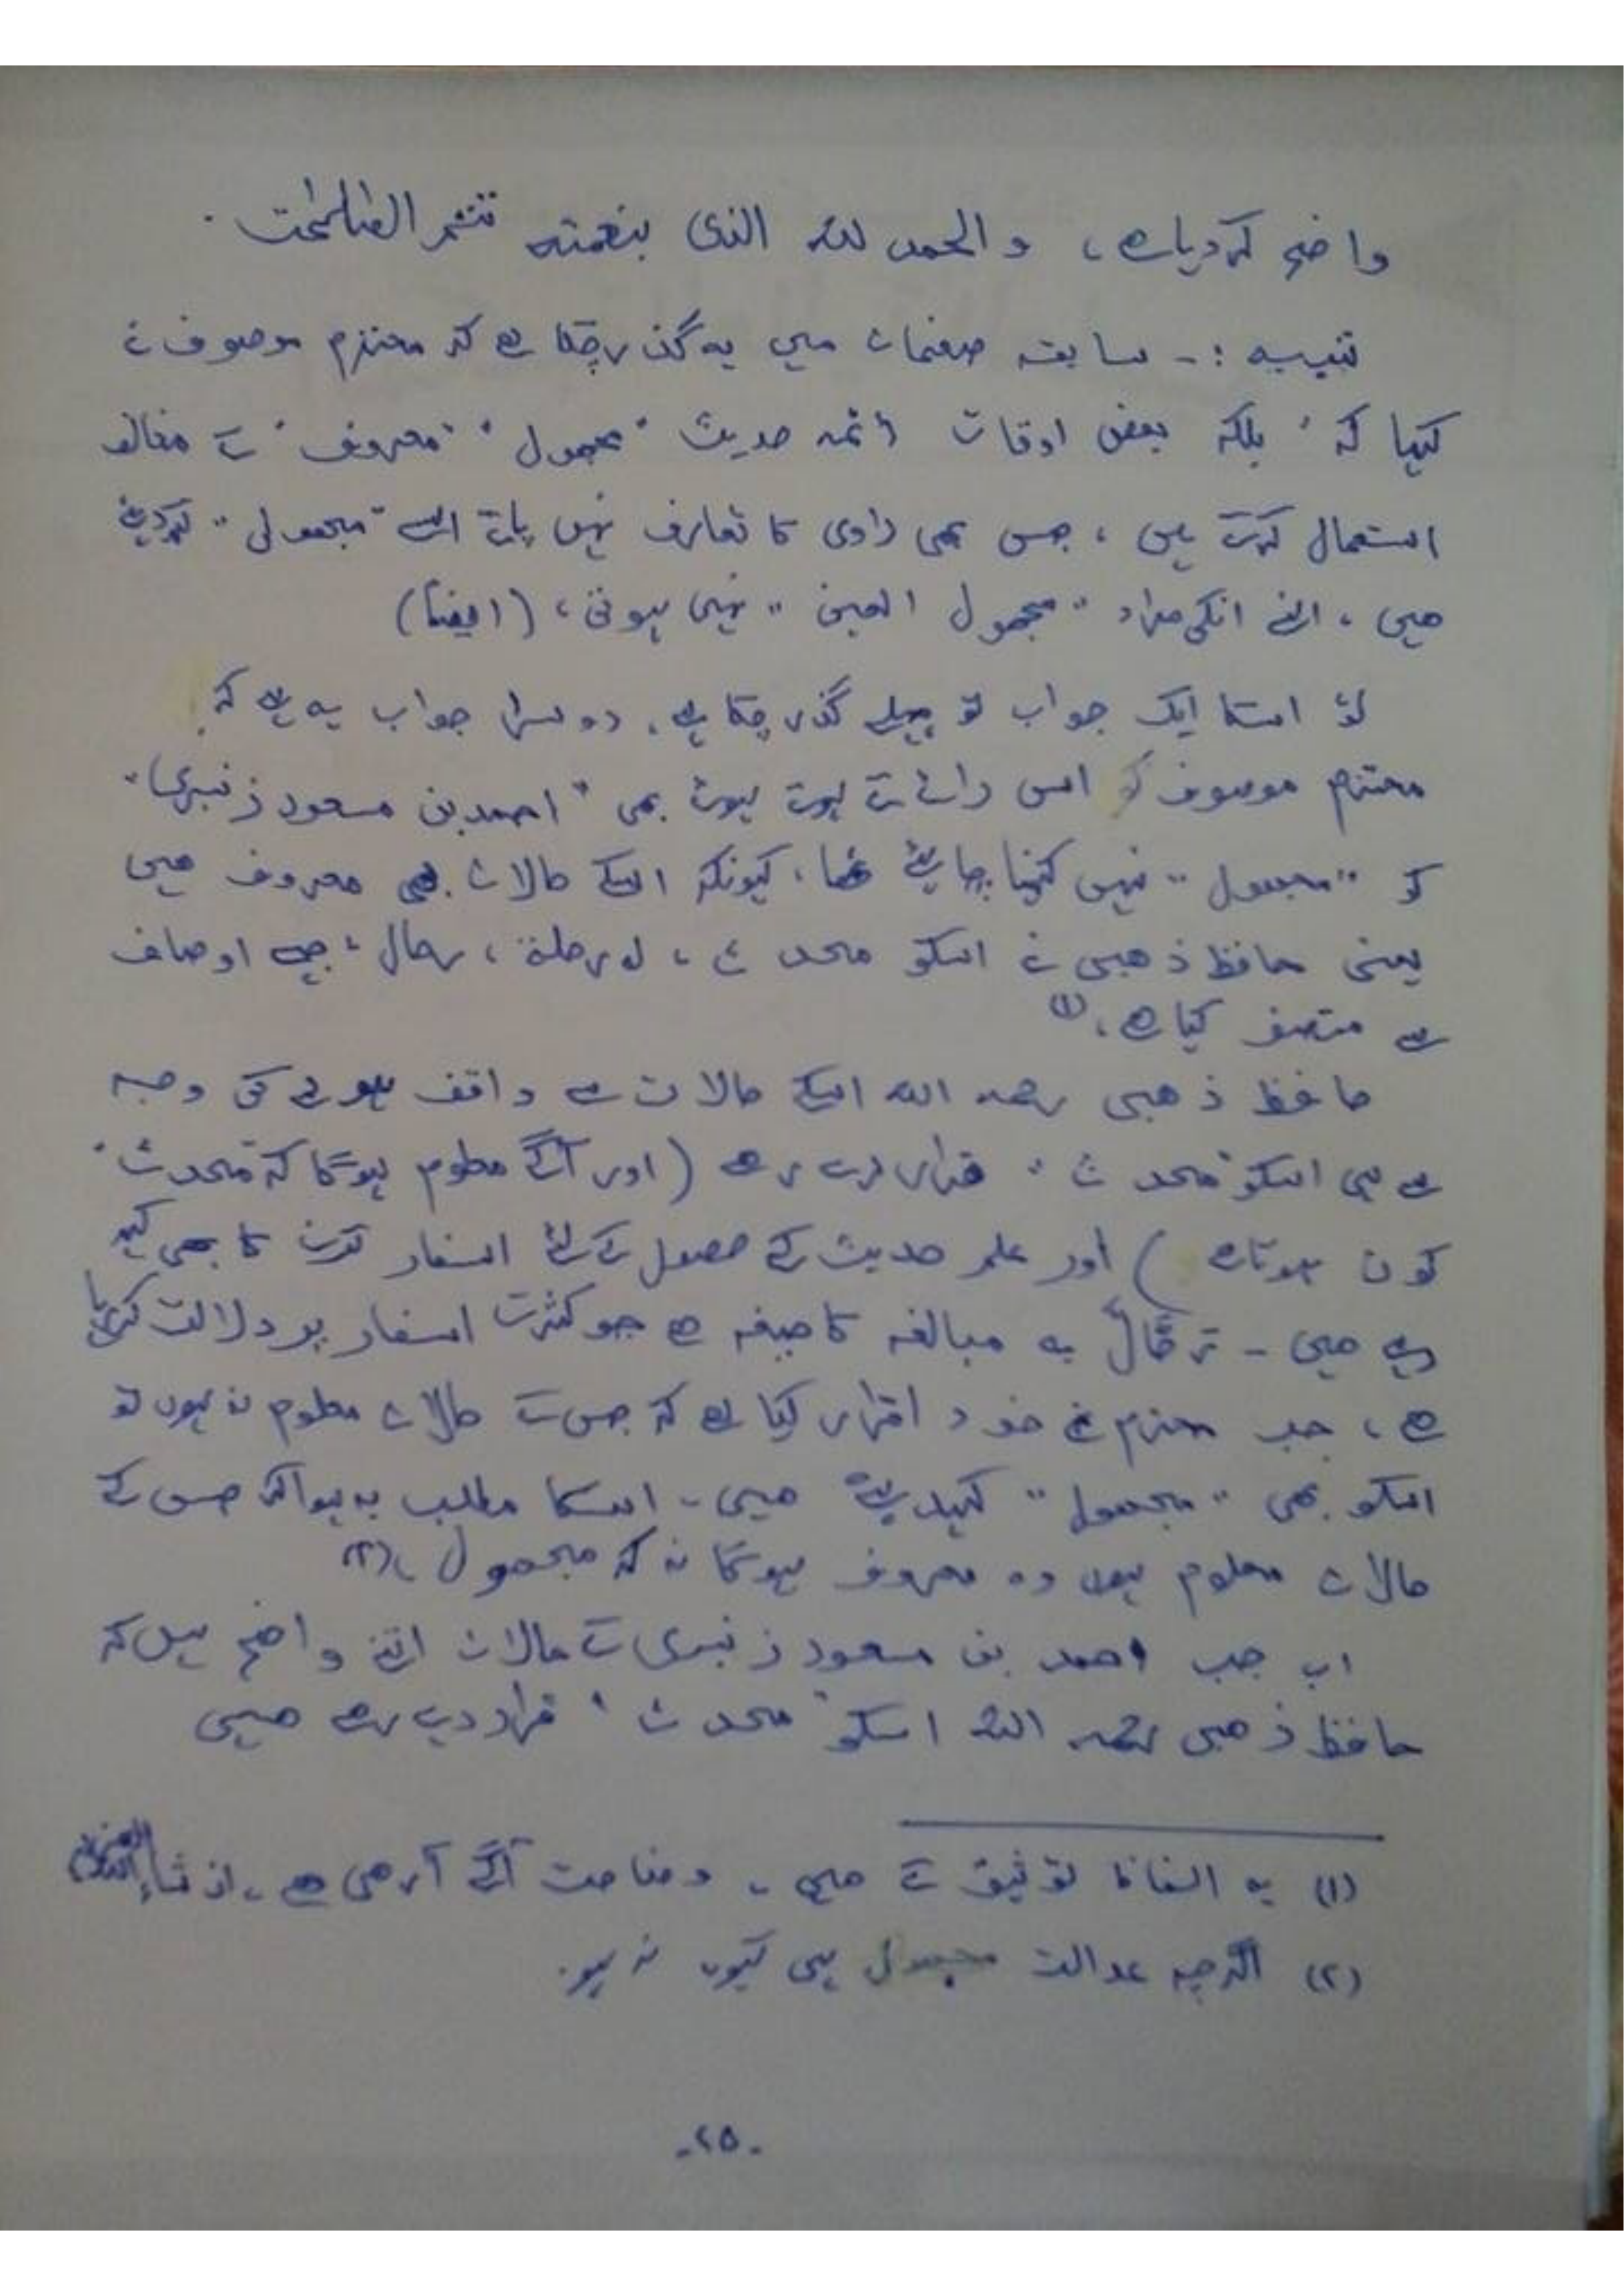 واضح کردیا ہے، والحمد للہ الذی بنعمتہ تتم الصٰلحٰت .
تنبیہ :- سابقہ صفحات میں یہ گذر چکا ہے کہ محترم موصوف نے
کہا کہ ' بلکہ بعض اوقات ائمہ حدیث "مجہول" "معروف" کے مخالف
استعمال کرتے ہیں ، جس بھی راوی کا تعارف نہیں پاتے اسے "مجہول" کہہ دیتے
ہیں ، اس سے انکی مراد "مجہول العین" نہیں ہوتی ، (ایضاً)
تو اسکا ایک جواب تو پہلے گذر چکا ہے ، دوسرا جواب یہ ہے کہ
محترم موصوف کو اس رائے کے ہوتے ہوئے بھی "احمد بن مسعود زنبری"
کو "مجہول" نہیں کہنا چاہیئے تھا ، کیونکہ اسکے حالات بھی معروف ہیں
یعنی حافظ ذھبی نے اسکو محدث ، لہ رحلۃ ، رحال ، جیسے اوصاف
سے متصف کیا ہے ، (۱)
حافظ ذھبی رحمہ اللہ اسکے حالات سے واقف ہونے کی وجہ
سے ہی اسکو "محدث" قرار دے رہے (اور آگے معلوم ہوگا کہ "محدث"
کون ہوتا ہے ) اور علم حدیث کے حصول کے لئے اسفار کرنے کا بھی کہہ
رہے ہیں - رحّال یہ مبالغہ کا صیغہ ہے جو کثرت اسفار پر دلالت کر رہا
ہے ، جب محترم نے خود اقرار کیا ہے کہ جس کے حالات معلوم نہ ہوں تو
اسکو بھی "مجہول" کہہ دیتے ہیں - اسکا مطلب یہ ہوا کہ جس کے
حالات معلوم ہوں وہ معروف ہوگا نہ کہ مجہول ، (۲)
اب جب احمد بن مسعود زنبری کے حالات اتنے واضح ہیں کہ
حافظ ذھبی رحمہ اللہ اسکو "محدث" قرار دے رہے ہیں
(۱) یہ الفاظ توثیق کے ہیں ، وضاحت آگے آرہی ہے ، ان شاء اللہ
(۲) اگرچہ عدالت مجہول ہی کیوں نہ ہو .
-۲۵-